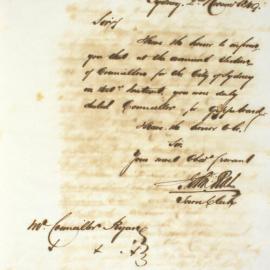 Sydney, 2nd Novem
Sir
Have the honor to inform
you that at the annual Election
of Councillors for the City of Sydney
on 1st Instant, you were duly
elected Councillor for Gipps ward
Have the honor &c.
Sir
Your most Obdt Servant
Town Clerk
Mr. Councillor Ryan